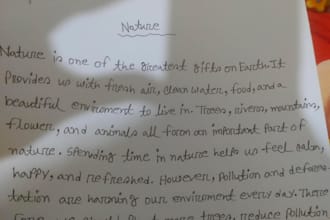 Nature
Nature is one of the greatest gifts on Earth. It
Provides us with fresh air, clean water, food, and a
beautiful enviroment to live in. Trees, rivers, mountains,
flower, and animals all form an important part of
nature. Spending time in nature helps us feel calm,
happy, and refreshed. However, Pollution and defores-
tation are harming our enviroment every day. There
more trees reduce Pollution